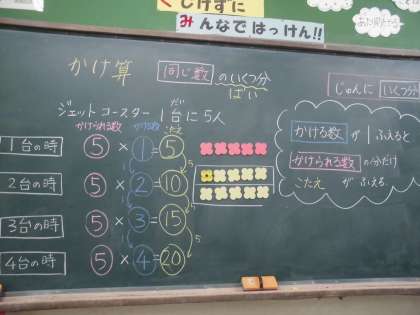 くじけずに
みんなではっけん!!
かけ算
同じ数 のいくつ分
ばい
じゅんに いくつ
ジェットコースター 1台に5人
だい
かけられる数 かける数 こたえ
1台の時 5 × 1 = 5
2台の時 5 × 2 = 10
3台の時 5 × 3 = 15
4台の時 5 × 4 = 20
5
5
かける数 が 1 ふえると
かけられる数 の分だけ
こたえ が ふえる